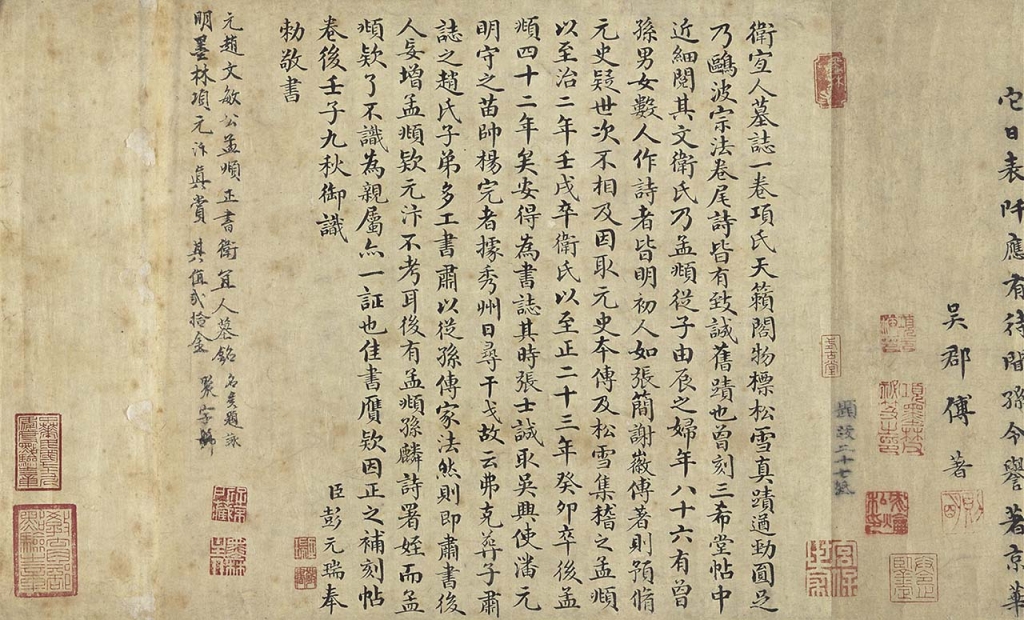 它日表阡應有待閭孫令譽著京華
吳郡傅著
衛宜人墓誌一卷項氏天籟閣物標松雪真蹟遒勁圓足
乃鷗波宗法卷尾詩皆有致誠舊蹟也曾刻三希堂帖中
近細閱其文衛氏乃孟頫從子由辰之婦年八十六有曾
孫男女數人作詩者皆明初人如張簡謝徽傅著則預脩
元史疑世次不相及因取元史本傳及松雪集稽之孟頫
以至治二年壬戌卒衛氏以至正二十三年癸卯卒後孟
頫四十二年矣安得為書誌其時張士誠取吳興使潘元
明守之苗帥楊完者據秀州日尋干戈故云弗克葬子肅
誌之趙氏子弟多工書肅以從孫傳家法然則即肅書後
人妄增孟頫欵元汴不考耳後有孟頫孫麟詩署姪而孟
頫欵了不識為親屬亦一証也佳書贗欵因正之補刻帖
卷後壬子九秋御識
臣彭元瑞奉
勅敬書
元趙文敏公孟頫正書衛宜人墓銘 名賢題詠
明墨林項元汴真賞 其值貳拾金